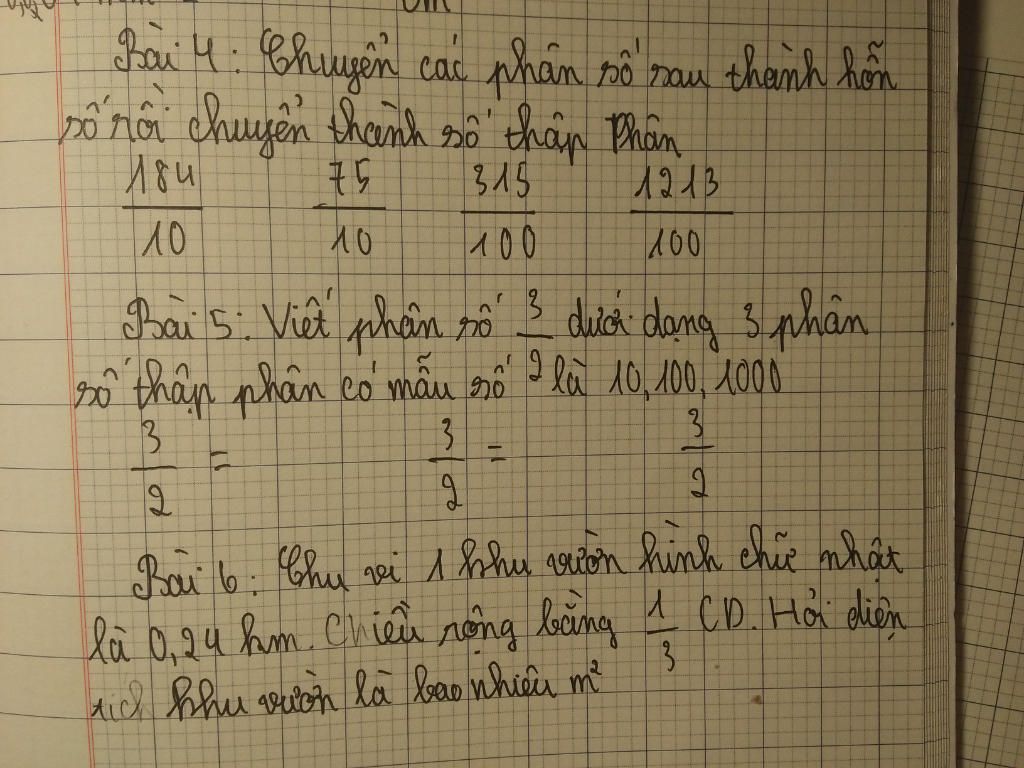 Bài 4: Chuyển các phân số sau thành hỗn
số rồi chuyển thành số thập phân
184/10 75/10 315/100 1213/100
Bài 5: Viết phân số 3/2 dưới dạng 3 phân
số thập phân có mẫu số là 10, 100, 1000
3/2 = 3/2 = 3/2
Bài 6: Chu vi 1 khu vườn hình chữ nhật
là 0,24 km. Chiều rộng bằng 1/3 CD. Hỏi diện
tích khu vườn là bao nhiêu m²